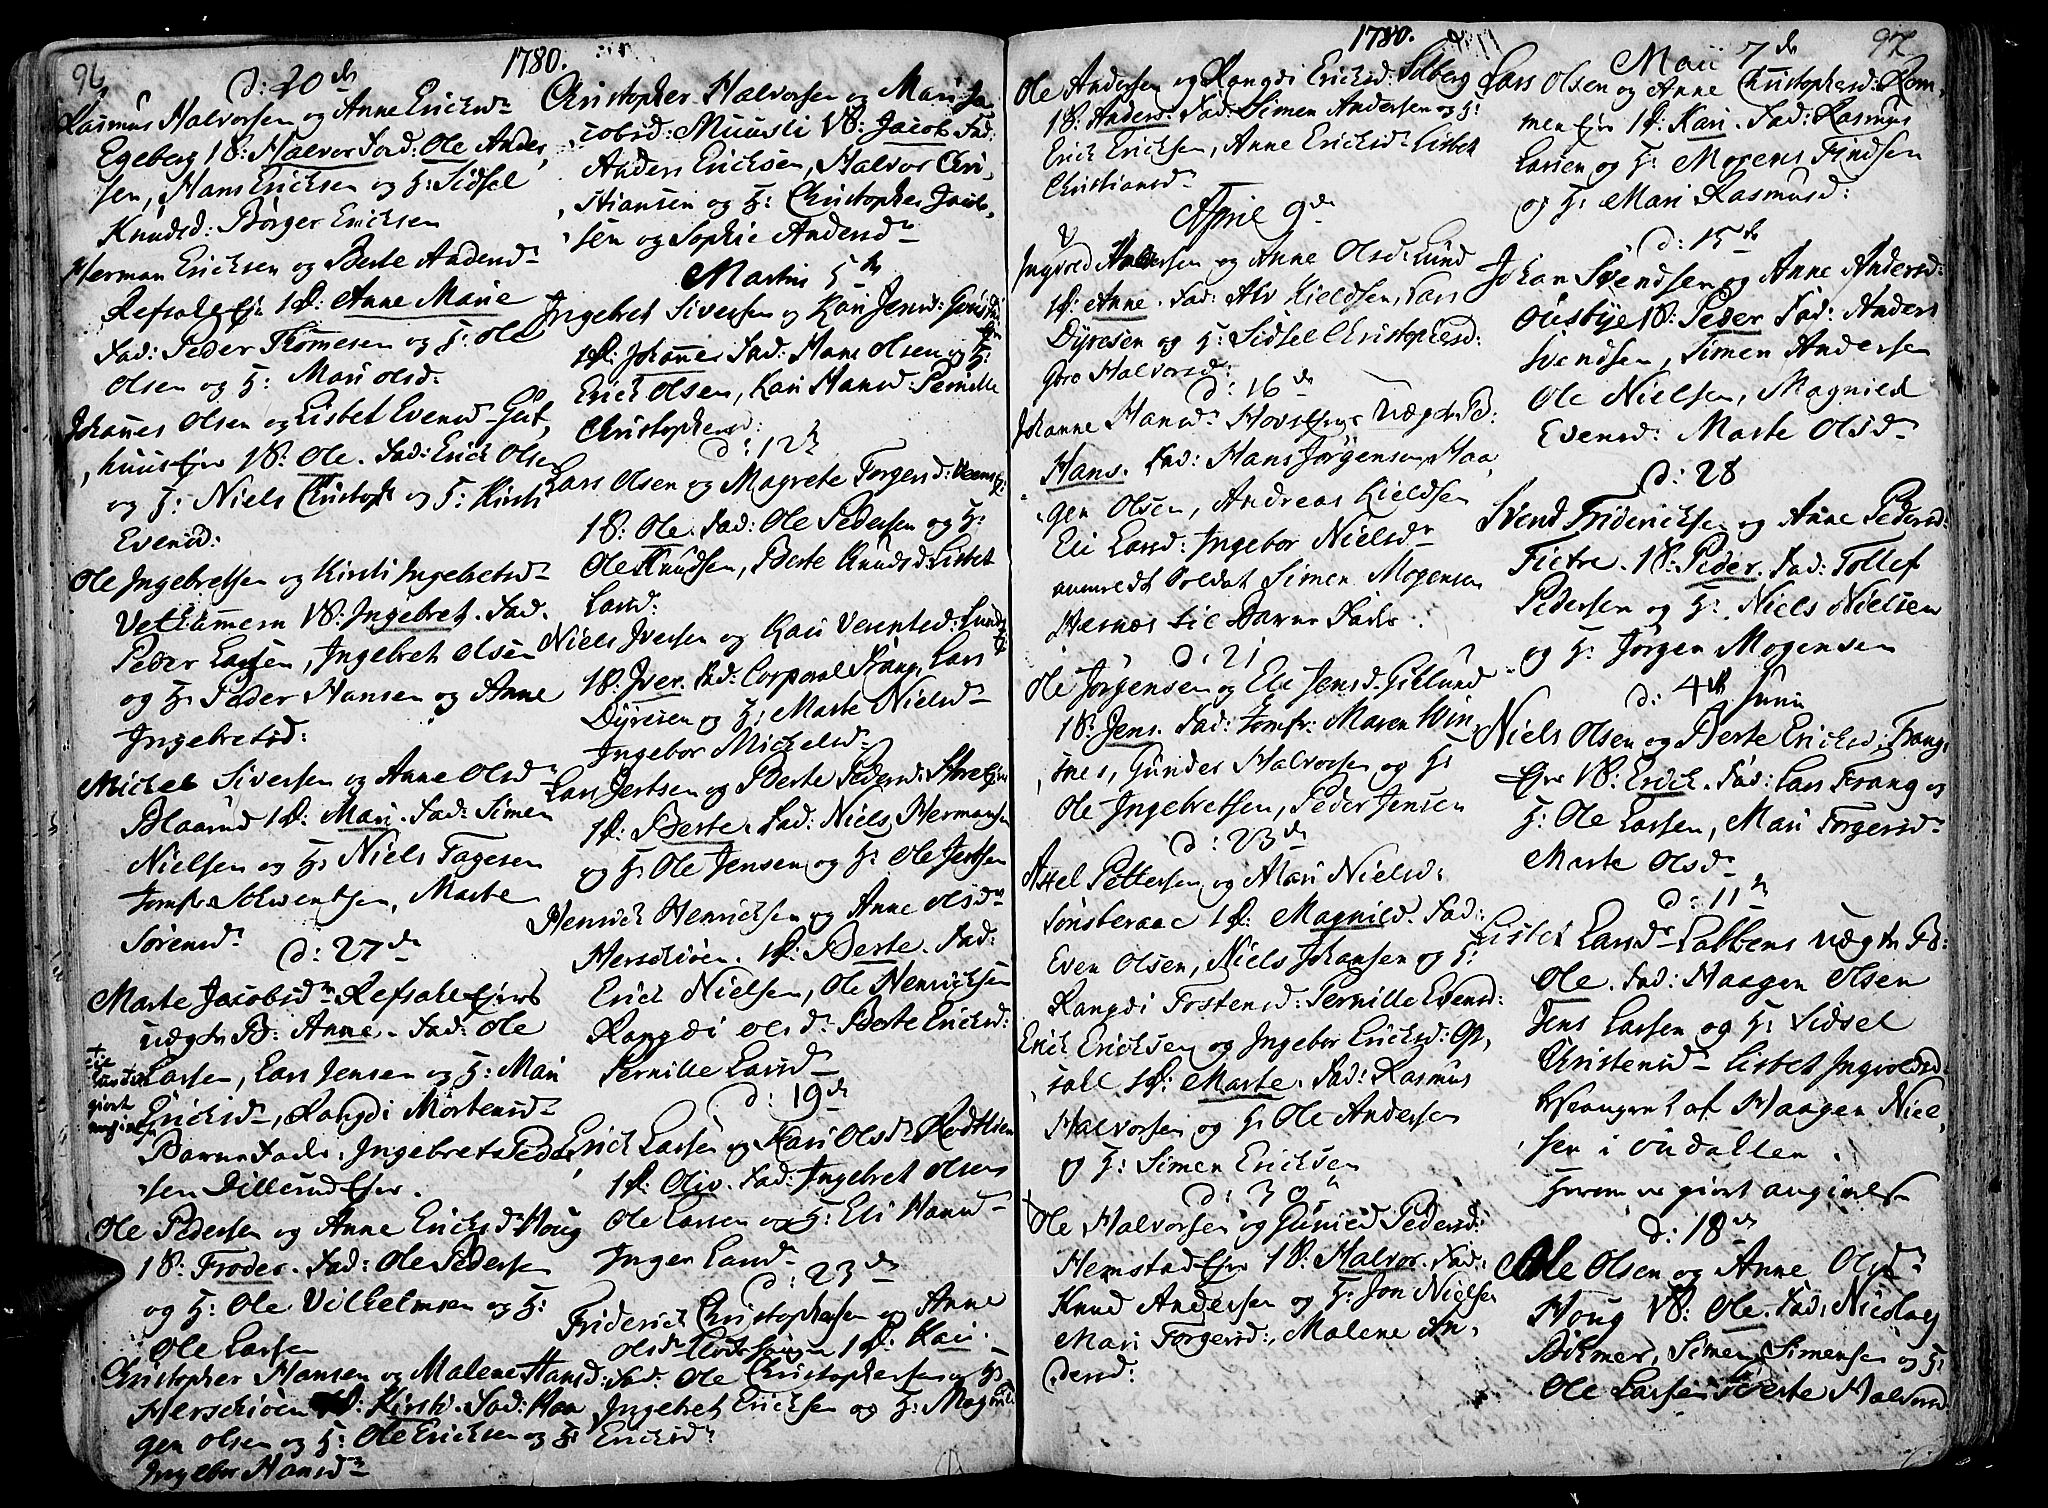 96
1780.
d: 20de
Rasmus Halvorsen og Anne Ericksd
Egeberg 1 B: Halvor Fad: Ole Ander
sen, Hans Ericksen og H: Sidsel
Knudsd: Börger Ericksen
Herman Ericksen og Berte Andersd
Refsahl Ejer 1 P: Anne Marie
Fad: Peder Thomesen og H: Ole
Olsen og H: Mari olsd:
Johannes Olsen og Lisbet Evensd
huus Ejer 1 B: Ole. Fad: Erich Olsen
og H: Niels Christoph og H: Kirsti
Evensd:
Ole Ingebretsen og Kirsti Ingebretsd
1 B: Ingebret. Fad:
Peder Larsen, Ingebret olsen
og H: Peder Hansen og Anne
Ingebretsd:
Michel Siversen og Anne Olsd
Blaarud 1 P: Mari. Fad: Simen
Nielsen og H: Niels Tagesen
Jomfr Marte
Sörensd
d: 27de
Marte Jacobsd Refsahl Ejers
uægte B: Anne. Fad: Ole
Larsen, Lars Jensen og H: Mari
Ericksd, Rangdi Mortensd
Barne Fader Ingebret Peder
sen Dillerud Ejer.
Ole Pedersen og Anne Ericksd Houg
1 B: Froder. Fad: Ole Pedersen
og H: Ole Vilhelmsen og H:
Ole Larsen
Christopher Hansen og Malene Hansd:
Herschiöen P: Kirsti. Fad: Haa
gen olsen og H: Ole Ericksen og H:
Ingebor Hansd
Christopher Halvorsen og Mari Ja
cobsd: Muusli 1 B: Jacob Fad:
Anders Ericksen, Halvor Chri
stiansen og H: Christopher Jacob
sen og Sophie Andersd
Martii 5te
Ingebret Siversen og Kari Jensd:
1 B: Johannes Fad: Hans Olsen og H:
Erich Olsen, Kari Hansd: Pernille
Christophersd:
d: 12te
Lars Olsen og Magrete Torgersd:
1 B: Ole. Fad: Ole Pedersen og H:
Ole Knudsen, Berte Knudsd: Lisbet
Larsd:
Niels Iversen og Kari Verentsd: Lund
1 B: Iver. Fad: Corporal Frang, Lars
Dyresen og H: Marte Nielsd
Ingebor Michelsd
Lars Jertsen og Berte Pedersd:
1 P: Berte. Fad: Niels Hermansen
og H: Ole Jensen og H: Ole Jertsen
Henrick Henricksen og Anne olsd
Herschiöen. 1 P: Berte. Fad:
Erick Nielsen, Ole Henricksen
Rangdi Olsd Berte Ericksd:
Pernille Larsd
d: 19de
Erick Larsen og Kari Olsd
1 P: Oliv. Fad: Ingebret olsen
Ole Larsen og H: Eli Hansd
Inger Larsd
d: 23de
Friderich Christophersen og Anne
olsd 1 P: Kari.
Fad: Ole Christophersen og H:
Ingebret Ericksen og H: Magnil
Ericksd
1780.
97
Ole Andersen og Rangdi Ericksd: Solberg
1 B: Anders. Fad: Simen Andersen og H:
Erick Ericksen, Anne Ericksd Lisbet
Christiansd
April 9de
Ingvold Andersen og Anne Olsd: Lund
1 P: Anne. Fad: Alv Kieldsen, Lars
Dyresen og H: Sidsel Christophersd:
Goro Halvorsd:
d: 16de
Johanne Hansd Ejer uægte B:
Hans. Fad: Hans Jörgensen, Haa
gen Olsen, Andreas Kieldsen
Eli Larsd: Ingebor Nielsd
anmeldt Soldat Simen Mogensen
til Barne Fader.
d: 21
Ole Jörgensen og Eli Jensd.
1 B: Jens. Fad: Jomfr: Maren Win
snes, Gunder Halvorsen og H:
Ole Ingebretsen, Peder Jensen
d: 23de
Axel Pettersen og Mari Nielsd:
1 P: Magnild. Fad:
Even Olsen, Niels Johansen og H:
Rangdi Tostensd: Pernille Evensd:
Erick Ericksen og Ingebor Ericksd: Op
sahl 1 P: Marte. Fad: Rasmus
Halvorsen og H: Ole Andersen
og H: Simen Ericksen
d: 30
Ole Halvorsen og Gunild Pedersd:
Hemstad Ejer 1 B: Halvor. Fad:
Knud Andersen og H: Jon Nielsen
Mari Torgersd: Malene An
dersd:
Maii 7de
Lars Olsen og Anne Christophersd: Rom
men Ejer 1 P: Kari. Fad: Rasmus
Larsen og H: Mogens Findsen
og H: Mari Rasmusd:
d: 15de
Johan Svendsen og Anne Andersd:
Ousbye 1 B: Peder Fad: Anders
Svendsen, Simen Andersen
Ole Nielsen, Magnild
Evensd: Marte Olsd
d: 28
Svend Friderichsen og Anne Pedersd:
Fietre. 1 B: Peder. Fad: Tollef
Pedersen og H: Niels Nielsen
og H: Jörgen Mogensen
d: 4de Junii
Niels Olsen og Berte Ericksd: Frang
Ejer 1 B: Erick. Fad: Lars Frang og
H: Ole Larsen, Mari Torgersd
Marte Olsd
d: 11te
Lisbet Larsd Labbens uægte B:
Ole. Fad: Haagen Olsen
Jens Larsen og H: Sidsel
Christensd Lisbet Ingvoldsd
besvangret af Haagen Niel
sen i Oudallen.
herom er giort angivelse
d: 18de
Ole Olsen og Anne Olsd
Houg 1 B: Ole. Fad: Nicolay
Dikmer, Simen Simensen og H:
Ole Larsen Berte Halvorsd